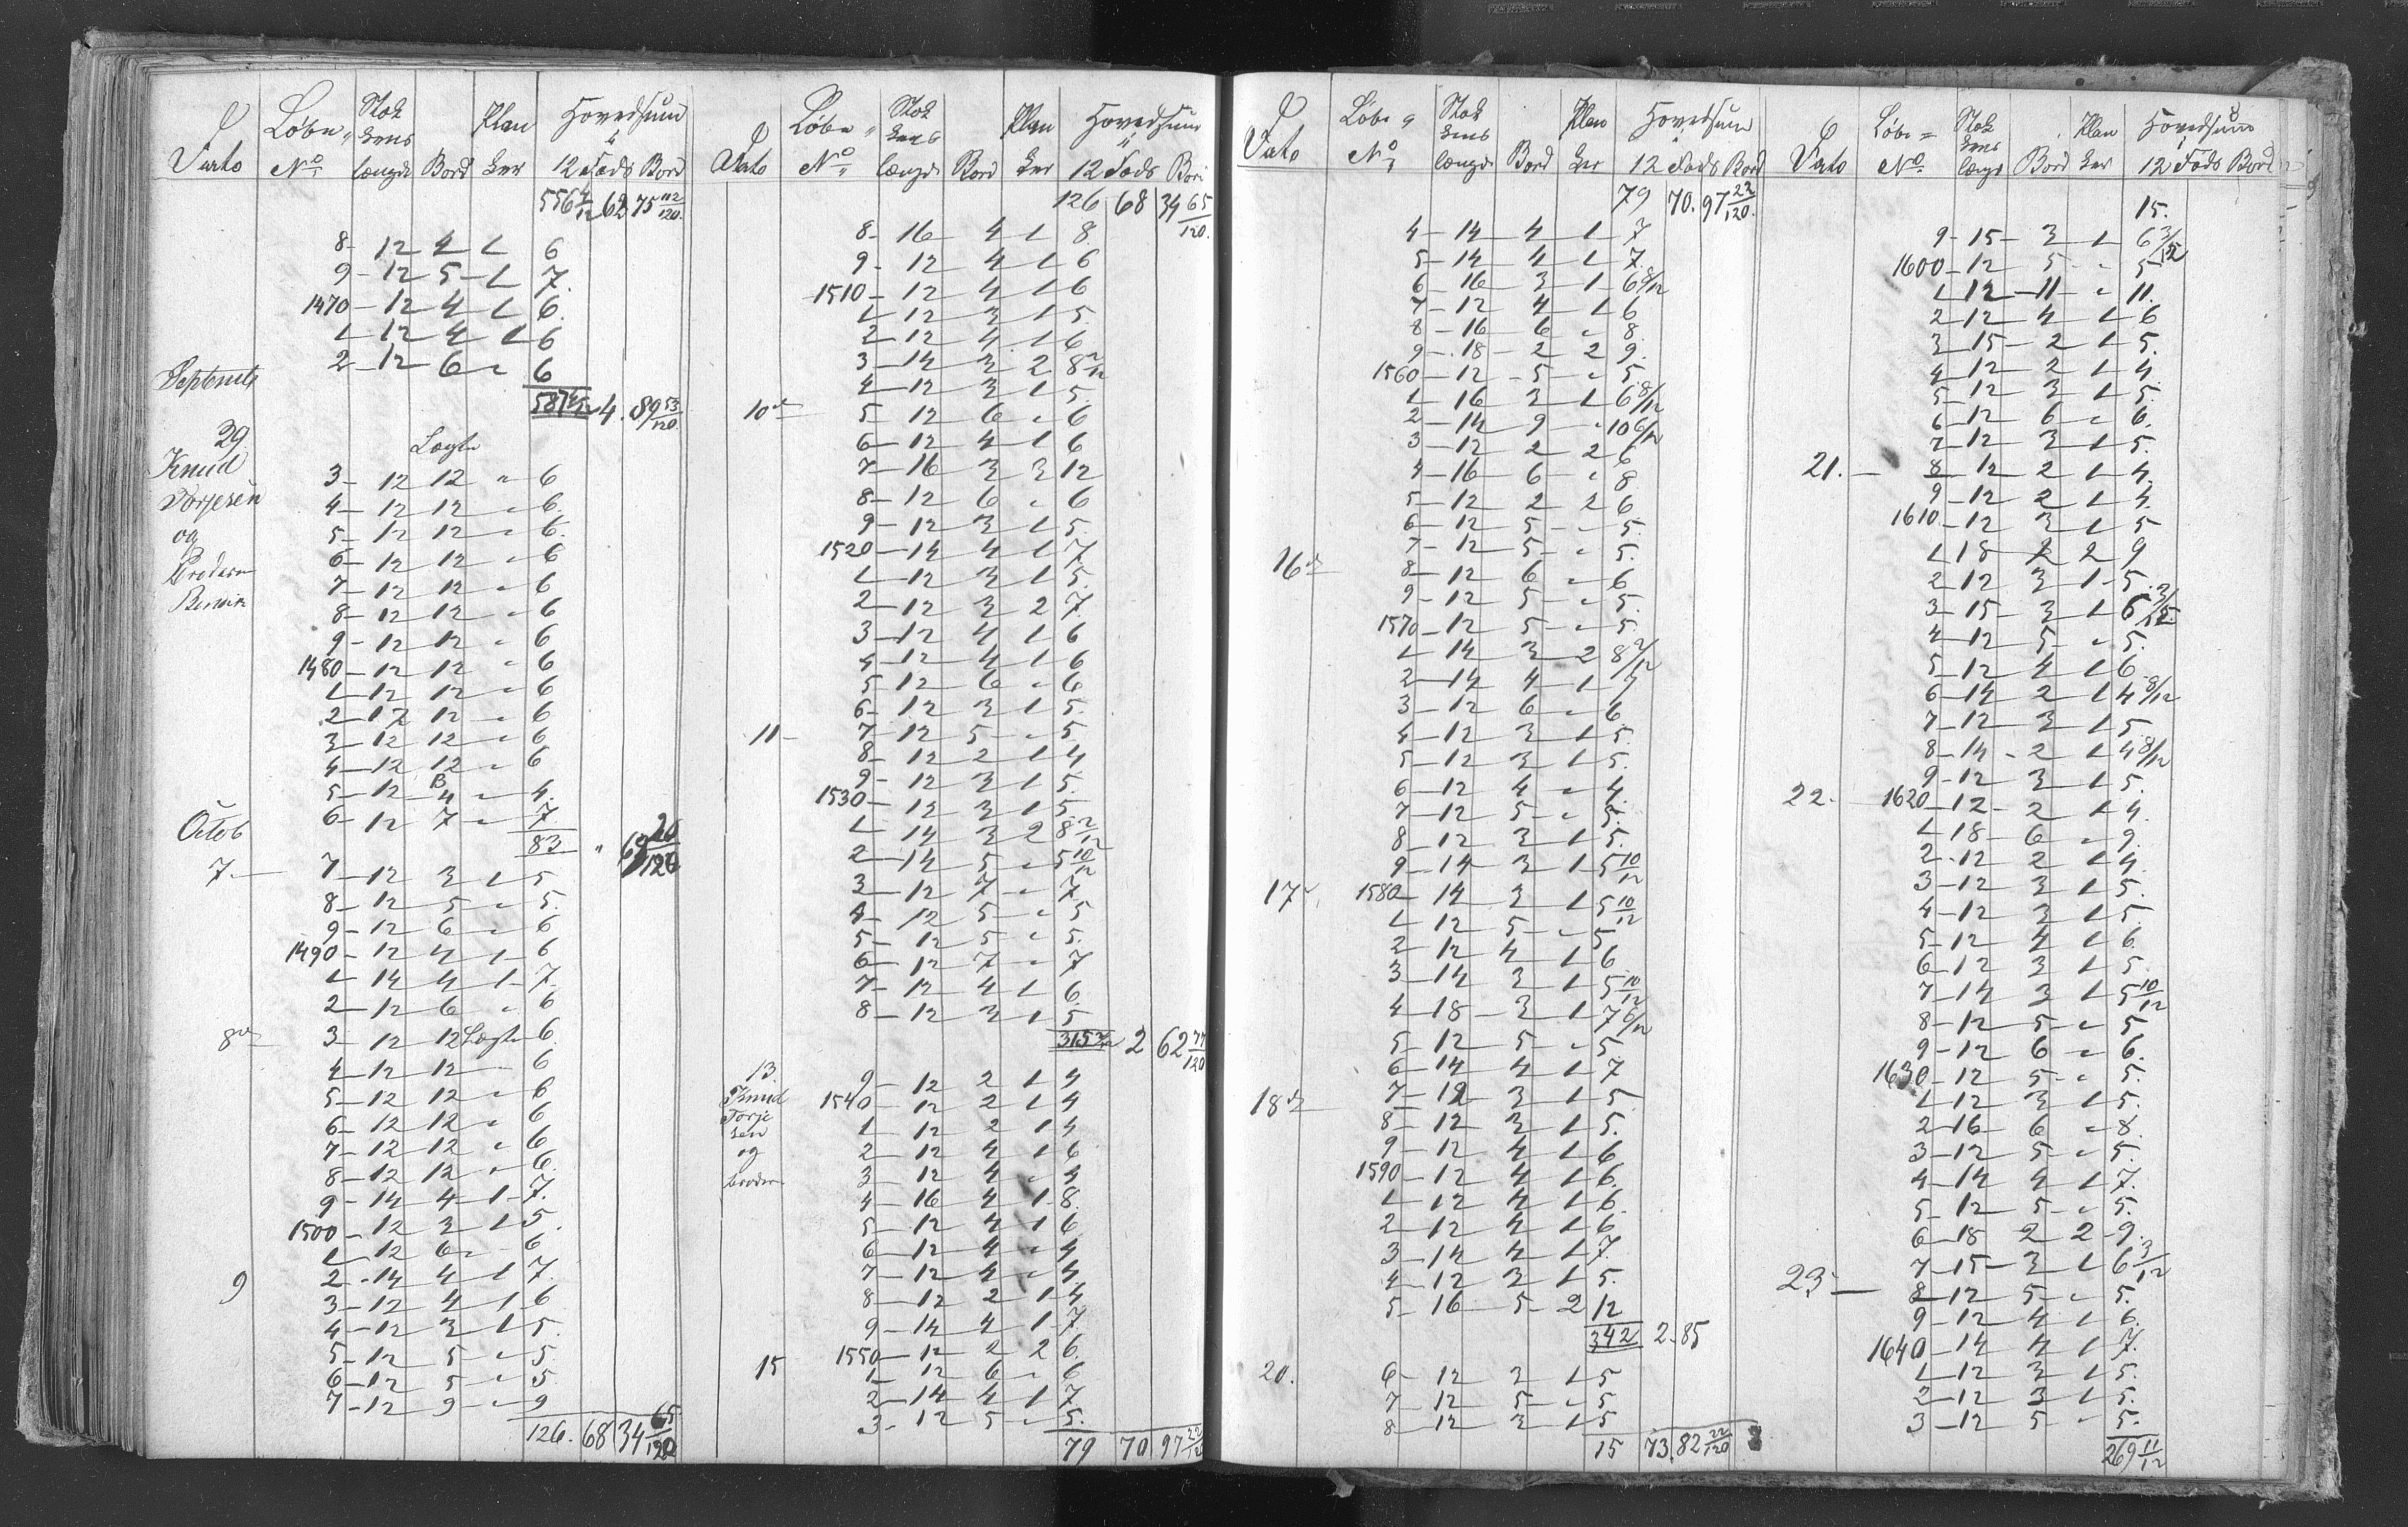 Dato Løbe No Stokkens længde Bord Planker Hovedsum 12 Fods Bord
556 4/12 62 75 112/120
8 - 12 4 1 6
9 - 12 5 1 7.
1470 - 12 4 1 6.
1 12 4 1 6
2 - 12 6 " 6
Septembr
587 4. 89 53/120
29 Lægter
Knud 3 - 12 12 " 6
Torjesen 4 - 12 12 " 6.
og 5 - 12 12 " 6.
Broderen 6 - 12 12 " 6
7 - 12 12 " 6
8 - 12 12 " 6
9 - 12 12 " 6
1480 - 12 12 " 6
1 12 12 " 6
2 12 12 " 6
3 12 12 " 6
4 - 12 12 " 6
5 - 12 B 4 " 4.
Octob 6 - 12 7 " 7
83 " 69 20/120
7 - 7 - 12 3 1 5
8 - 12 5 " 5.
9 - 12 6 " 6
1490 - 12 4 1 6
1 14 4 1 7.
2 - 12 6 " 6
8de 3 - 12 12 Lægter 6
4 - 12 12 " 6
5 - 12 12 " 6
6 - 12 12 " 6
7 - 12 12 " 6
8 - 12 12 " 6.
9 - 14 4 1 7.
1500 - 12 3 1 5.
1 12 6 " 6
9 2 - 14 4 1 7.
3 - 12 4 1 6
4 - 12 3 1 5.
5 - 12 5 " 5
6 - 12 5 " 5
7 - 12 9 " 9
126. 68 34 65/120
Dato Løbe No Stokkens længde Bord Planker Hovedsum 12 Fods Bord
126 68 34 65/120.
8 - 16 4 1 8.
9 - 12 4 1 6
1510 - 12 4 1 6
1 12 3 1 5
2 - 12 4 1 6
3 - 14 3 2 8 2/12
4 - 12 3 1 5.
10de 5 12 6 " 6
6 - 12 4 1 6
7 - 16 3 3 12
8 - 12 6 " 6
9 - 12 3 1 5.
1520 - 14 4 1 7.
1 12 3 1 5.
2 - 12 3 2 7.
3 - 12 4 1 6
4 - 12 4 1 6
5 12 6 " 6
6 - 12 3 1 5.
11 - 7 - 12 5 " 5
8 - 12 2 1 4
9 - 12 3 1 5.
1530 - 12 3 1 5
1 14 3 2 8 2/12
2 - 14 5 " 5 10/12
3 - 12 7 " 7
4 - 12 5 " 5
5 - 12 5 " 5.
6 - 12 7 " 7
7 - 12 4 1 6.
8 - 12 3 1 5
315 2 62 77/120
13. 9 - 12 2 1 4
Knud 1540 - 12 2 1 4
Torje 1 12 2 1 4
sen 2 - 12 4 1 6
og 3 - 12 4 " 4
broderen 4 - 16 4 1 8.
5 - 12 4 1 6
6 - 12 4 " 4
7 - 12 4 " 4
8 - 12 2 1 4
9 - 14 4 1 7
15 1550 - 12 2 2 6.
1 - 12 6 " 6
2 - 14 4 1 7
3 - 12 5 " 5.
79 70 97 22/120
Dato Løbe No Stokkens længde Bord Planker Hovedsum 12 Fods Bord
79 70. 97 22/120.
4 - 14 4 1 7
5 - 14 4 1 7
6 - 16 3 1 6 8/12
7 - 12 4 1 6
8 - 16 6 " 8.
9 - 18 - 2 2 9.
1560 - 12 - 5 " 5.
1 16 3 1 6 8/12
2 - 14 9 " 10 6/12
3 - 12 2 2 6
4 - 16 6 " 8
5 - 12 2 2 6
6 - 12 5 - " 5.
7 - 12 5 " 5.
16de 8 - 12 6 " 6
9 - 12 5 " 5.
1570 - 12 5 " 5.
1 14 3 2 8 2/12
2 - 14 4 1 7
3 - 12 6 " 6
4 - 12 3 1 5.
5 - 12 3 1 5.
6 - 12 4 " 4.
7 - 12 5 " 5.
8 - 12 3 1 5.
9 - 14 3 1 5 10/12
17de 1580 - 14 3 1 5 10/12
1 12 5 " 5
2 12 4 1 6
3 - 14 3 1 5 10/12
4 - 18 - 3 1 7 6/12
5 12 5 " 5
6 - 14 4 1 7
18de 7 - 12 3 1 5
8 - 12 3 1 5.
9 - 12 4 1 6
1590 - 12 4 1 6.
1 12 4 1 6.
2 - 12 4 1 6
3 - 14 4 1 7.
4 - 12 3 1 5.
5 - 16 5 - 2 12
342 2. 85
20. 6 - 12 3 1 5
7 - 12 5 " 5
8 - 12 3 1 5
15 73. 82 22/120
Dato Løbe No Stokkens længd Bord Planker Hovedsum 12 Fods Bord
15.
9 - 15 - 3 1 6 3/12
1600 - 12 5 " 5
1 12 11 " 11.
2 - 12 4 1 6
3 15 - 2 1 5.
4 - 12 2 1 4.
5 - 12 3 1 5.
6 - 12 6 " 6.
7 - 12 3 1 5.
21. - 8 - 12 2 1 4.
9 - 12 2 1 4.
1610 - 12 3 1 5
1 18 2 2 9
2 - 12 3 1 5.
3 - 15 - 3 1 6 3/12.
4 - 12 5 " 5.
5 - 12 4 1 6
6 - 14 2 1 4 8/12
7 - 12 3 1 5
8 - 14 - 2 1 4 8/12
9 - 12 3 1 5.
22. 1620 - 12 - 2 1 4.
1 18 - 6 " 9.
2 - 12 2 1 4.
3 - 12 3 1 5.
4 - 12 3 1 5.
5 - 12 4 1 6.
6 - 12 3 1 5.
7 - 14 3 1 5 10/12
8 - 12 5 " 5
9 - 12 6 " 6.
1630 - 12 5 " 5.
1 12 3 1 5.
2 - 16 - 6 " 8.
3 - 12 5 " 5.
4 - 14 4 1 7.
5 - 12 5 - " 5.
6 - 18 2 2 9.
7 - 15 - 3 1 6 3/12
23 - 8 - 12 5 " 5.
9 - 12 4 1 6.
1640 - 14 4 1 7.
1 12 3 1 5.
2 - 12 3 1 5.
3 - 12 5 " 5.
269 11/12